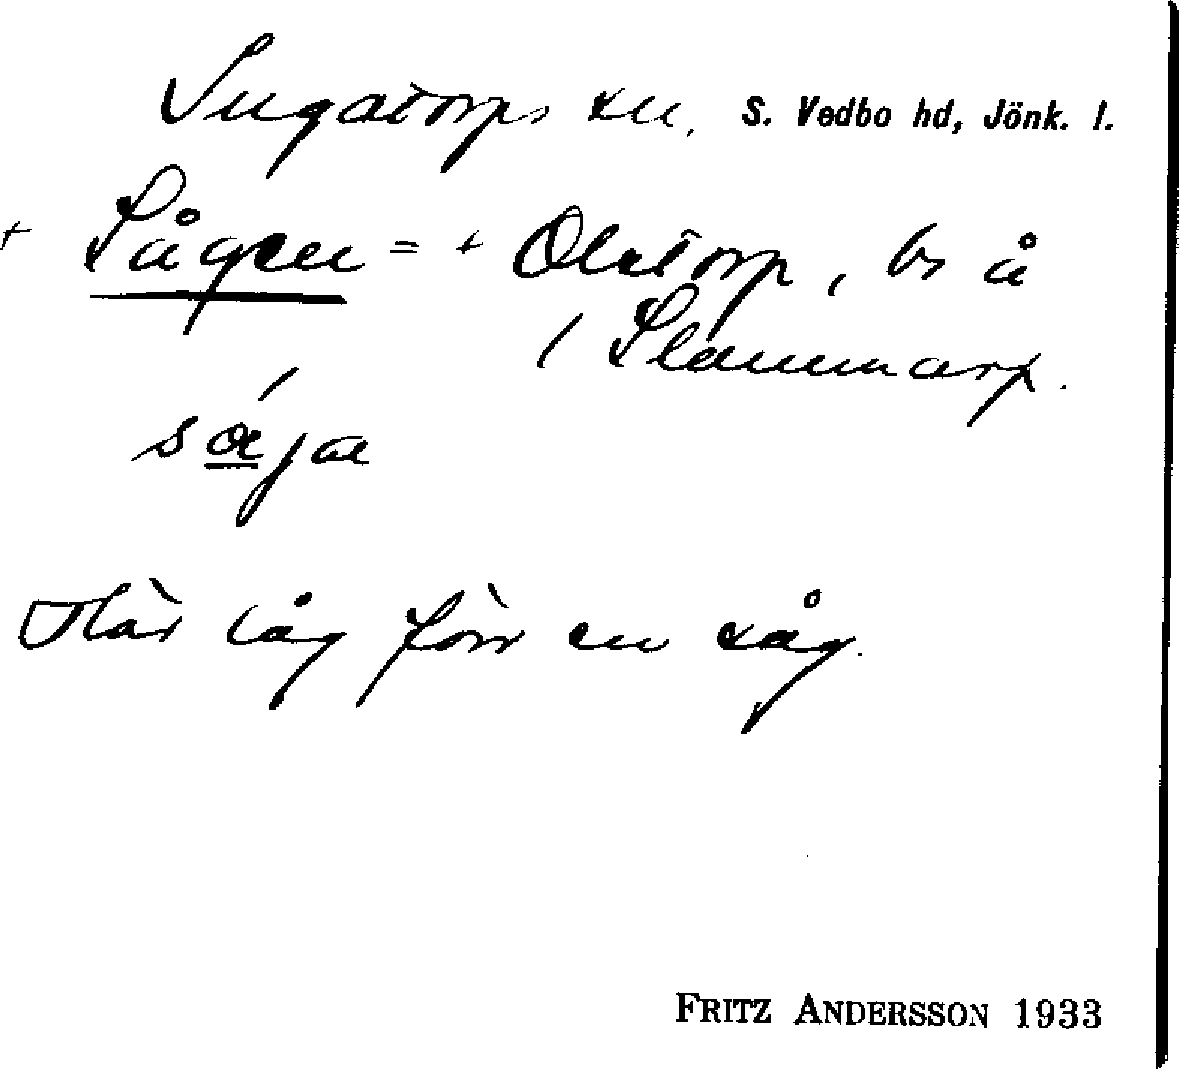 Ingatorps sn, S. Vedbo hd, Jönk. l.
+ Sågen = + Olstorp, bs å
/ Stammarp.
sɑ́ja
Här låg förr en såg.
FRITZ ANDERSSON 1933